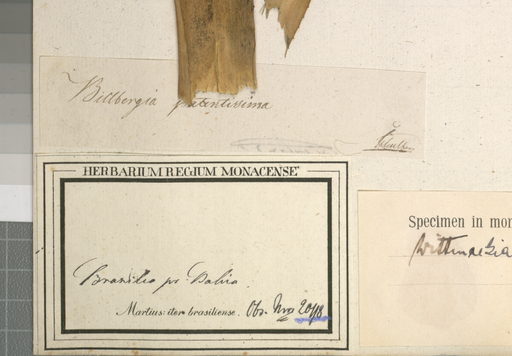 Billbergia patentissima
HERBARIUM REGIUM MONACENSE
Brasilia pr Bahia.
Martius: iter brasiliense. Obs. Nro 2018
Specimen in mon
Wittmackia